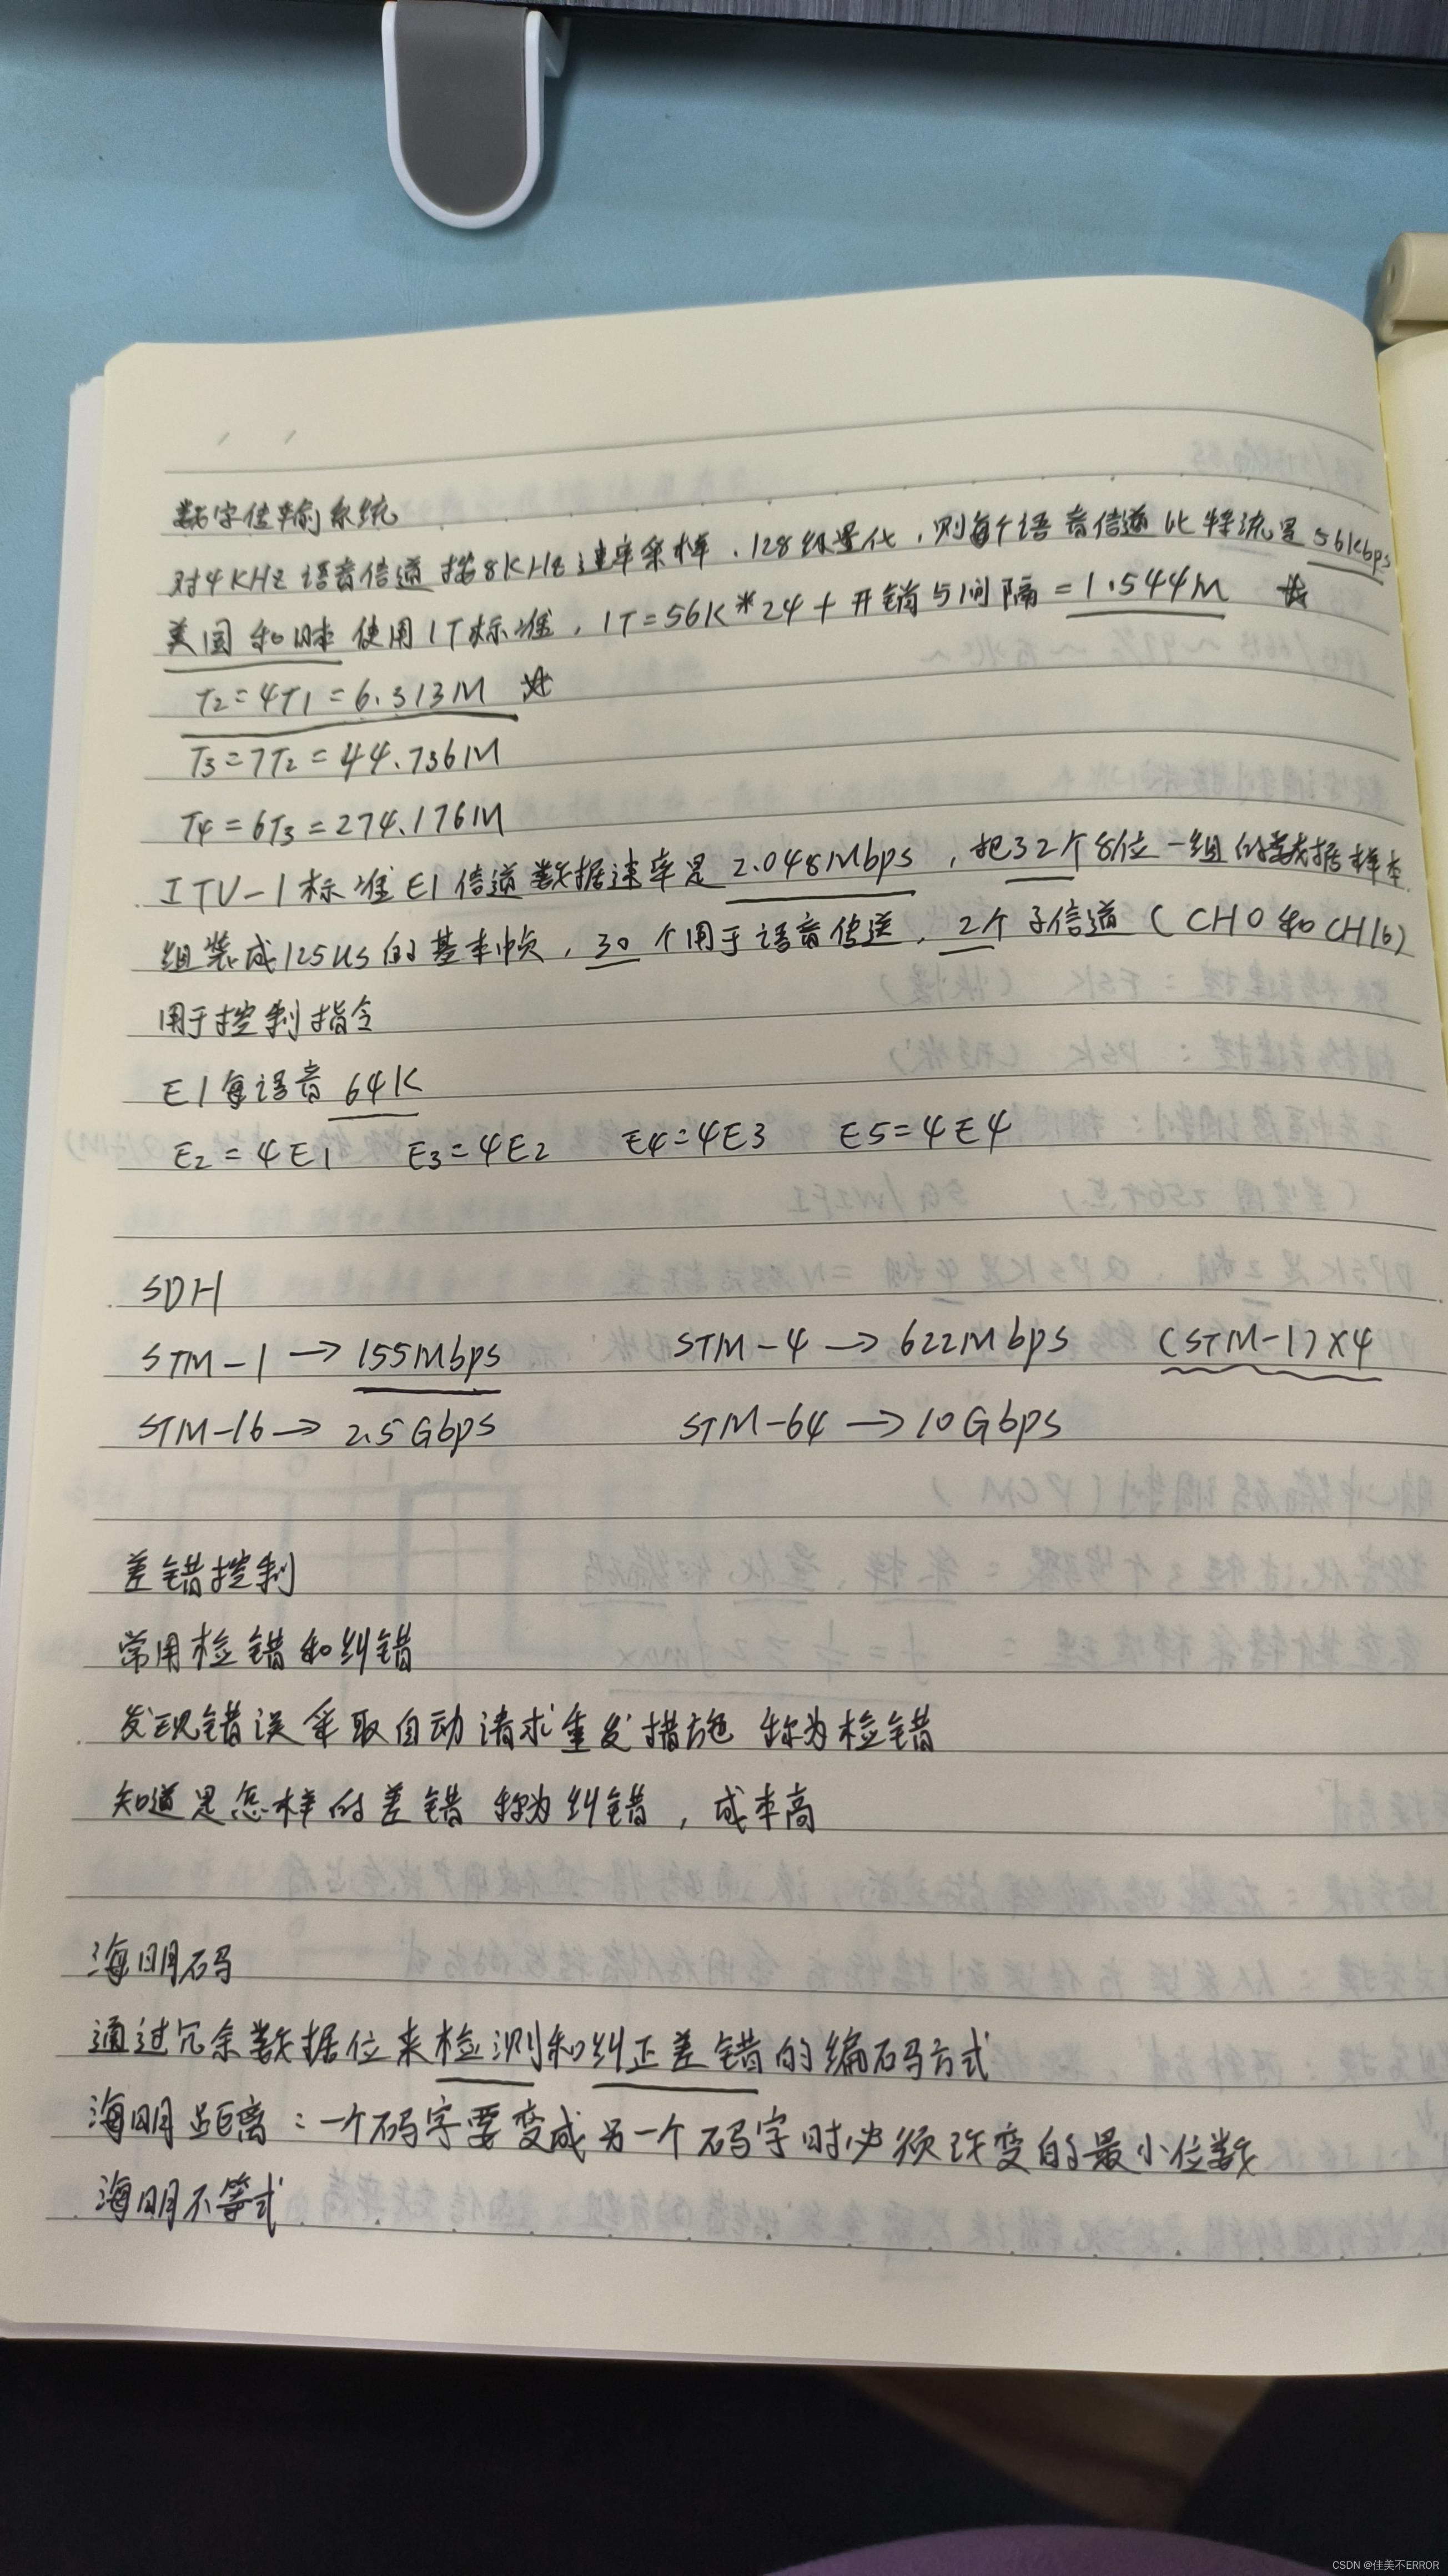 数字传输系统
对4KHz语音信道按8KHz速率采样，128级量化，则每个语音信道比特流是56kbps
美国和日本使用1T标准，1T=56K*24+开销与间隔=1.544M ☆
T2=4T1=6.313M ☆
T3=7T2=44.736M
T4=6T3=274.176M
ITU-1标准E1信道数据速率是2.048Mbps，把32个8位一组的数据样本
组装成125us的基本帧，30个用于语音传送，2个子信道（CH0和CH16）
用于控制指令
E1每语音64K
E2=4E1 E3=4E2 E4=4E3 E5=4E4
SDH
STM-1→155Mbps STM-4→622Mbps (STM-1)×4
STM-16→2.5Gbps STM-64→10Gbps
差错控制
常用检错和纠错
发现错误采取自动请求重发措施 称为检错
知道是怎样的差错 称为纠错，成本高
海明码
通过冗余数据位来检测和纠正差错的编码方式
海明距离：一个码字要变成另一个码字时必须改变的最小位数
海明不等式
CSDN @佳美不ERROR